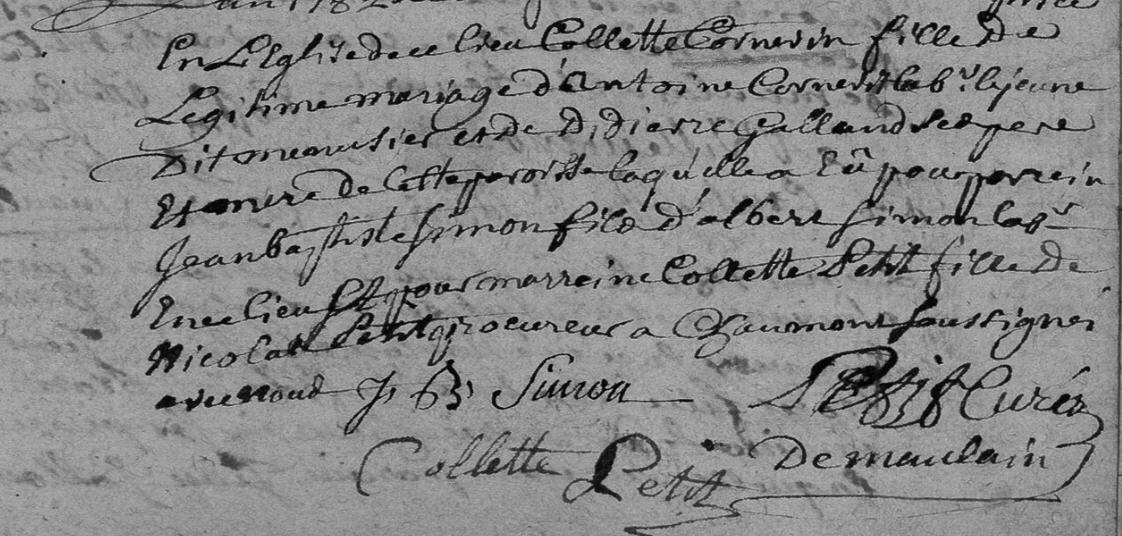 En L'Eglise de ce lieu Collette Cornevin fille de
Legitime mariage d'Antoine Cornevin lab.r le jeune
Dit menusier et de Didiere Galland Ses pere
Et mere de Cette paroisse laquelle a Eû pour parrein
Jean baptiste Simon fils d'albert Simon lab.r
En ce lieu Et pour marreine Collette Petit fille de
Nicolas Petit procureur a Chaumont soussignés
avec nous J B Simon Petit Curé
Collette Petit De maulain